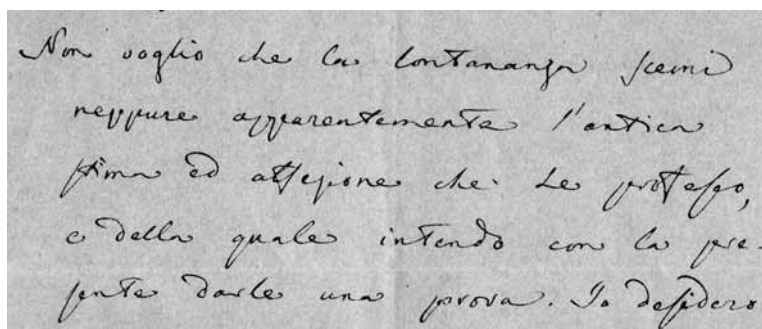 Non voglio che la lontananza scemi
neppure apparentemente l'antica
stima ed affezione che Le professo,
e della quale intendo con la pre-
sente darle una prova. Io desidero